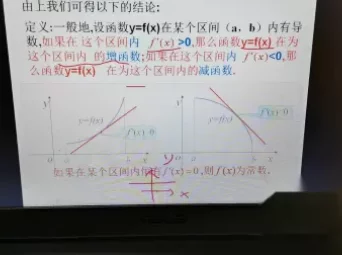 由上我们可得以下的结论:
定义:一般地,设函数y=f(x)在某个区间(a,b)内有导
数,如果在 这个区间内 f'(x) >0,那么函数y=f(x) 在为
这个区间内 的增函数;如果在这个区间内 f'(x)<0,那
么函数y=f(x) 在为这个区间内的减函数.
y
y
y=f(x)
y=f(x)
0 a b x
0 a b x
如果在某个区间内恒有f'(x)=0,则f(x)为常数.
y
x